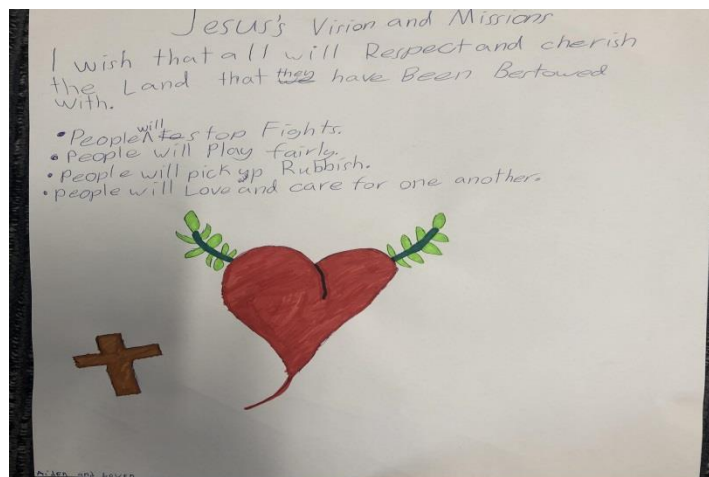 Jesus's Vision and Missions
I wish that all will Respect and cherish
the Land that they have Been Bestowed
with.
• People will stop Fights.
• People will Play fairly.
• People will pick up Rubbish.
• people will Love and care for one another.
Aiden and